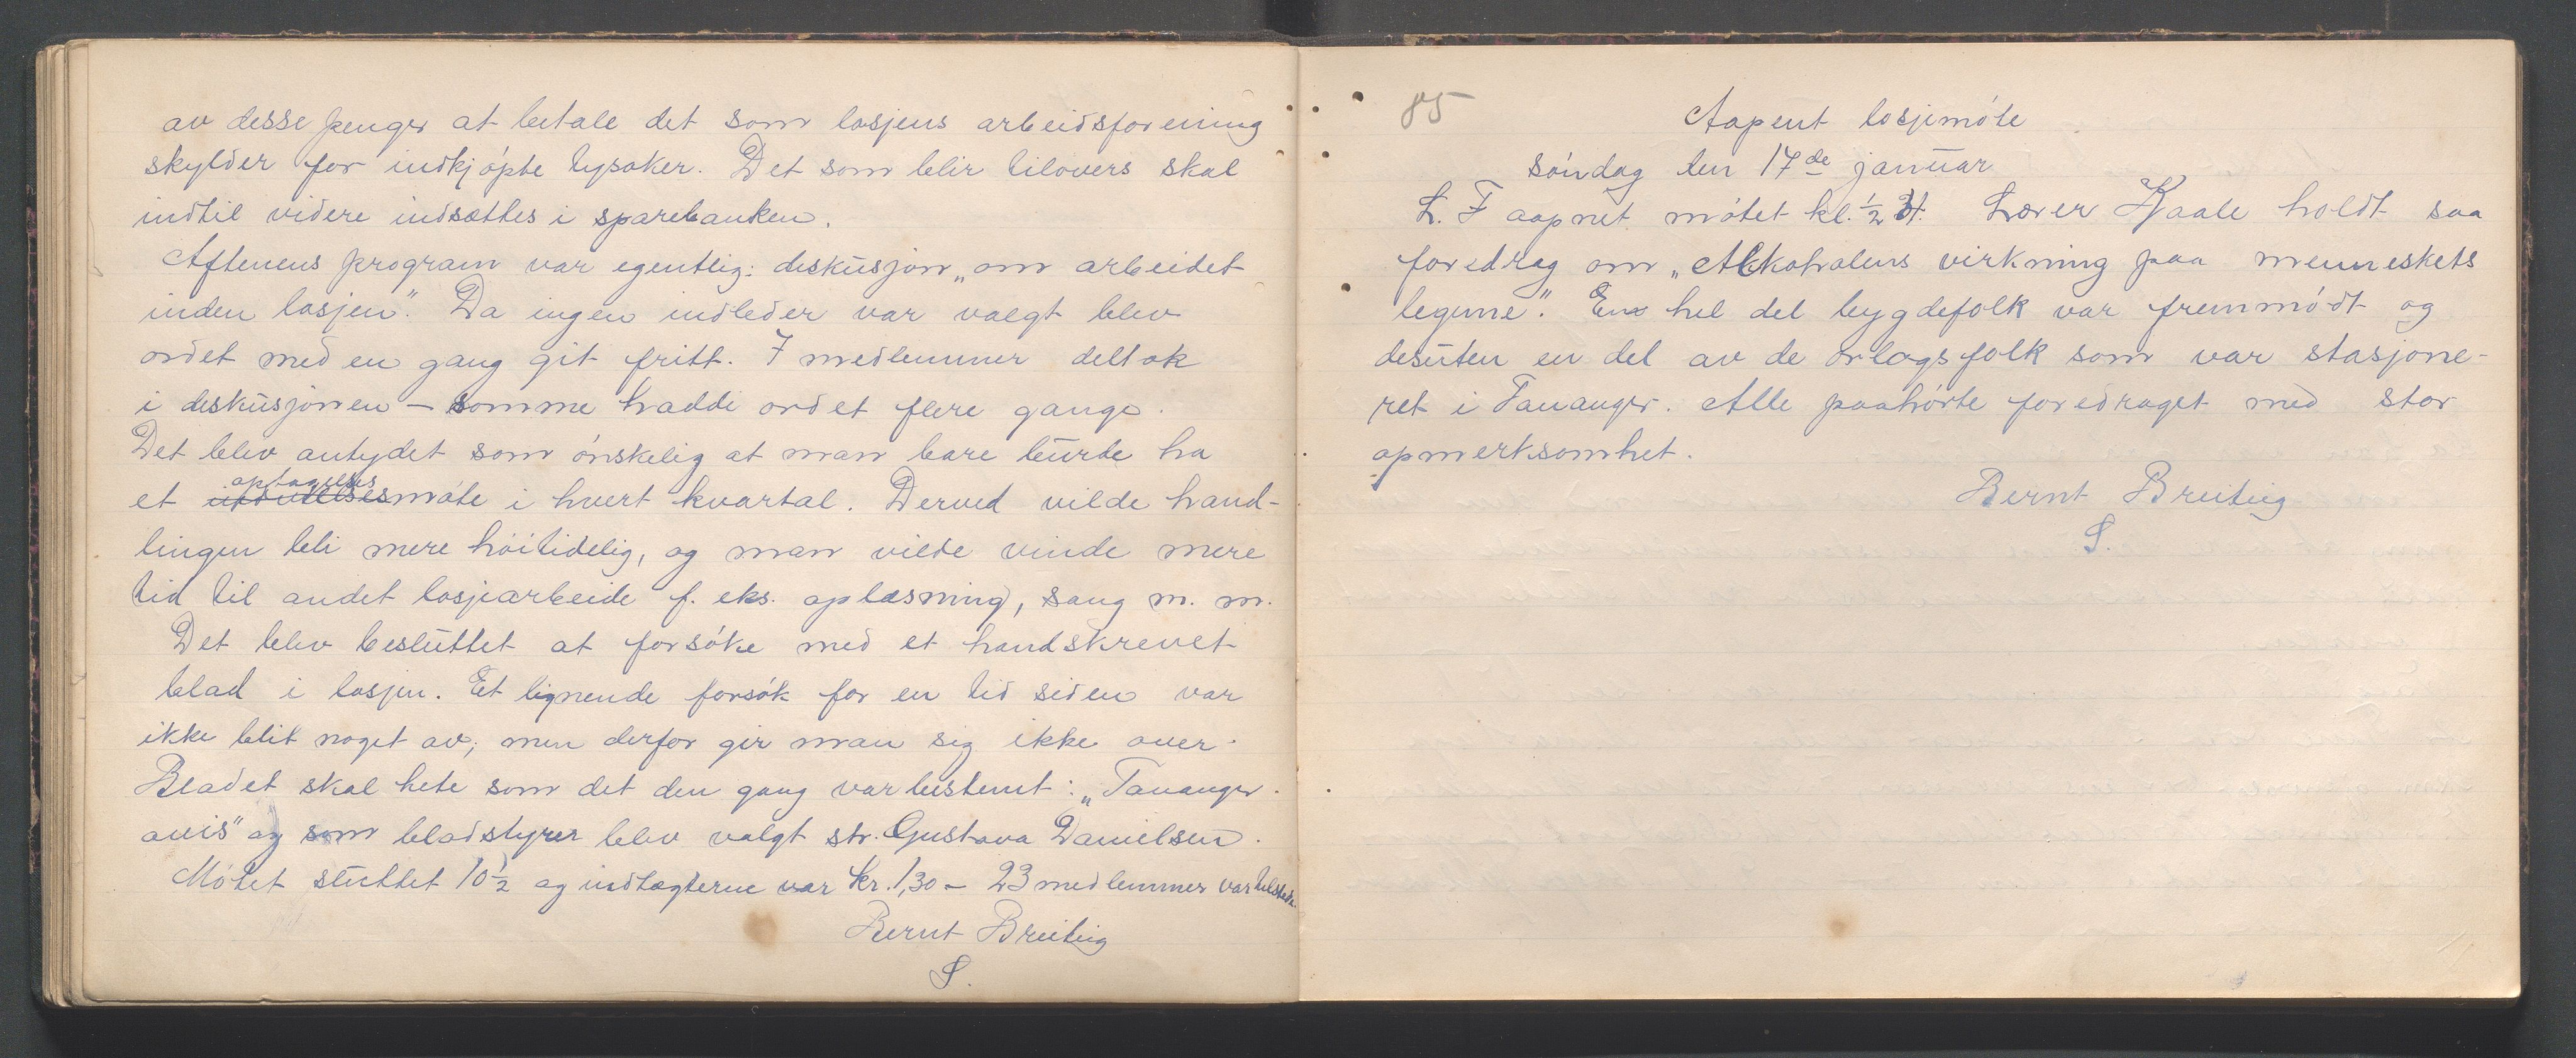 av desse penger at betale det som losjens arbeidsforening
skylder for indkjøpte lysaker. Det som blir tilovers skal
indtil videre indsættes i sparebanken.
Aftenens program var egentlig: diskusjon „om arbeidet
inden losjen". Da ingen indleder var valgt blev
ordet med en gang git fritt. 7 medlemmer deltok
i diskusjonen – somme hadde ordet flere gange.
Det blev antydet som ønskelig at man bare burde ha
optagelses
et møte i hvert kvartal. Derved vilde hand-
lingen bli mere høitidelig, og man vilde vinde mere
tid til andet losjearbeide f. eks. oplæsning, sang m. m.
Det blev besluttet at forsøke med et handskrevet
blad i losjen. Et lignende forsøk for en tid siden var
ikke blit noget av; men derfor gir man sig ikke over.
Bladet skal hete som det den gang var bestemt: „Tananger
avis" og som bladstyrer blev valgt str. Gustava Danielsen.
Møtet sluttet 10½ og indtægterne var kr. 1,30 – 23 medlemmer var tilstede.
Bernt Breiteig
S.
85
Aapent losjemøte
søndag den 17de januar
L. F aapnet møtet kl. ½ Lærer Kjaale holdt saa
foredrag om „Alkoholens virkning paa menneskets
legeme". En hel del bygdefolk var fremmødt og
desuten en del av de orlogsfolk som var stasjone-
ret i Tananger. Alle paahørte foredraget med stor
opmerksomhet.
Bernt Breiteig
S.